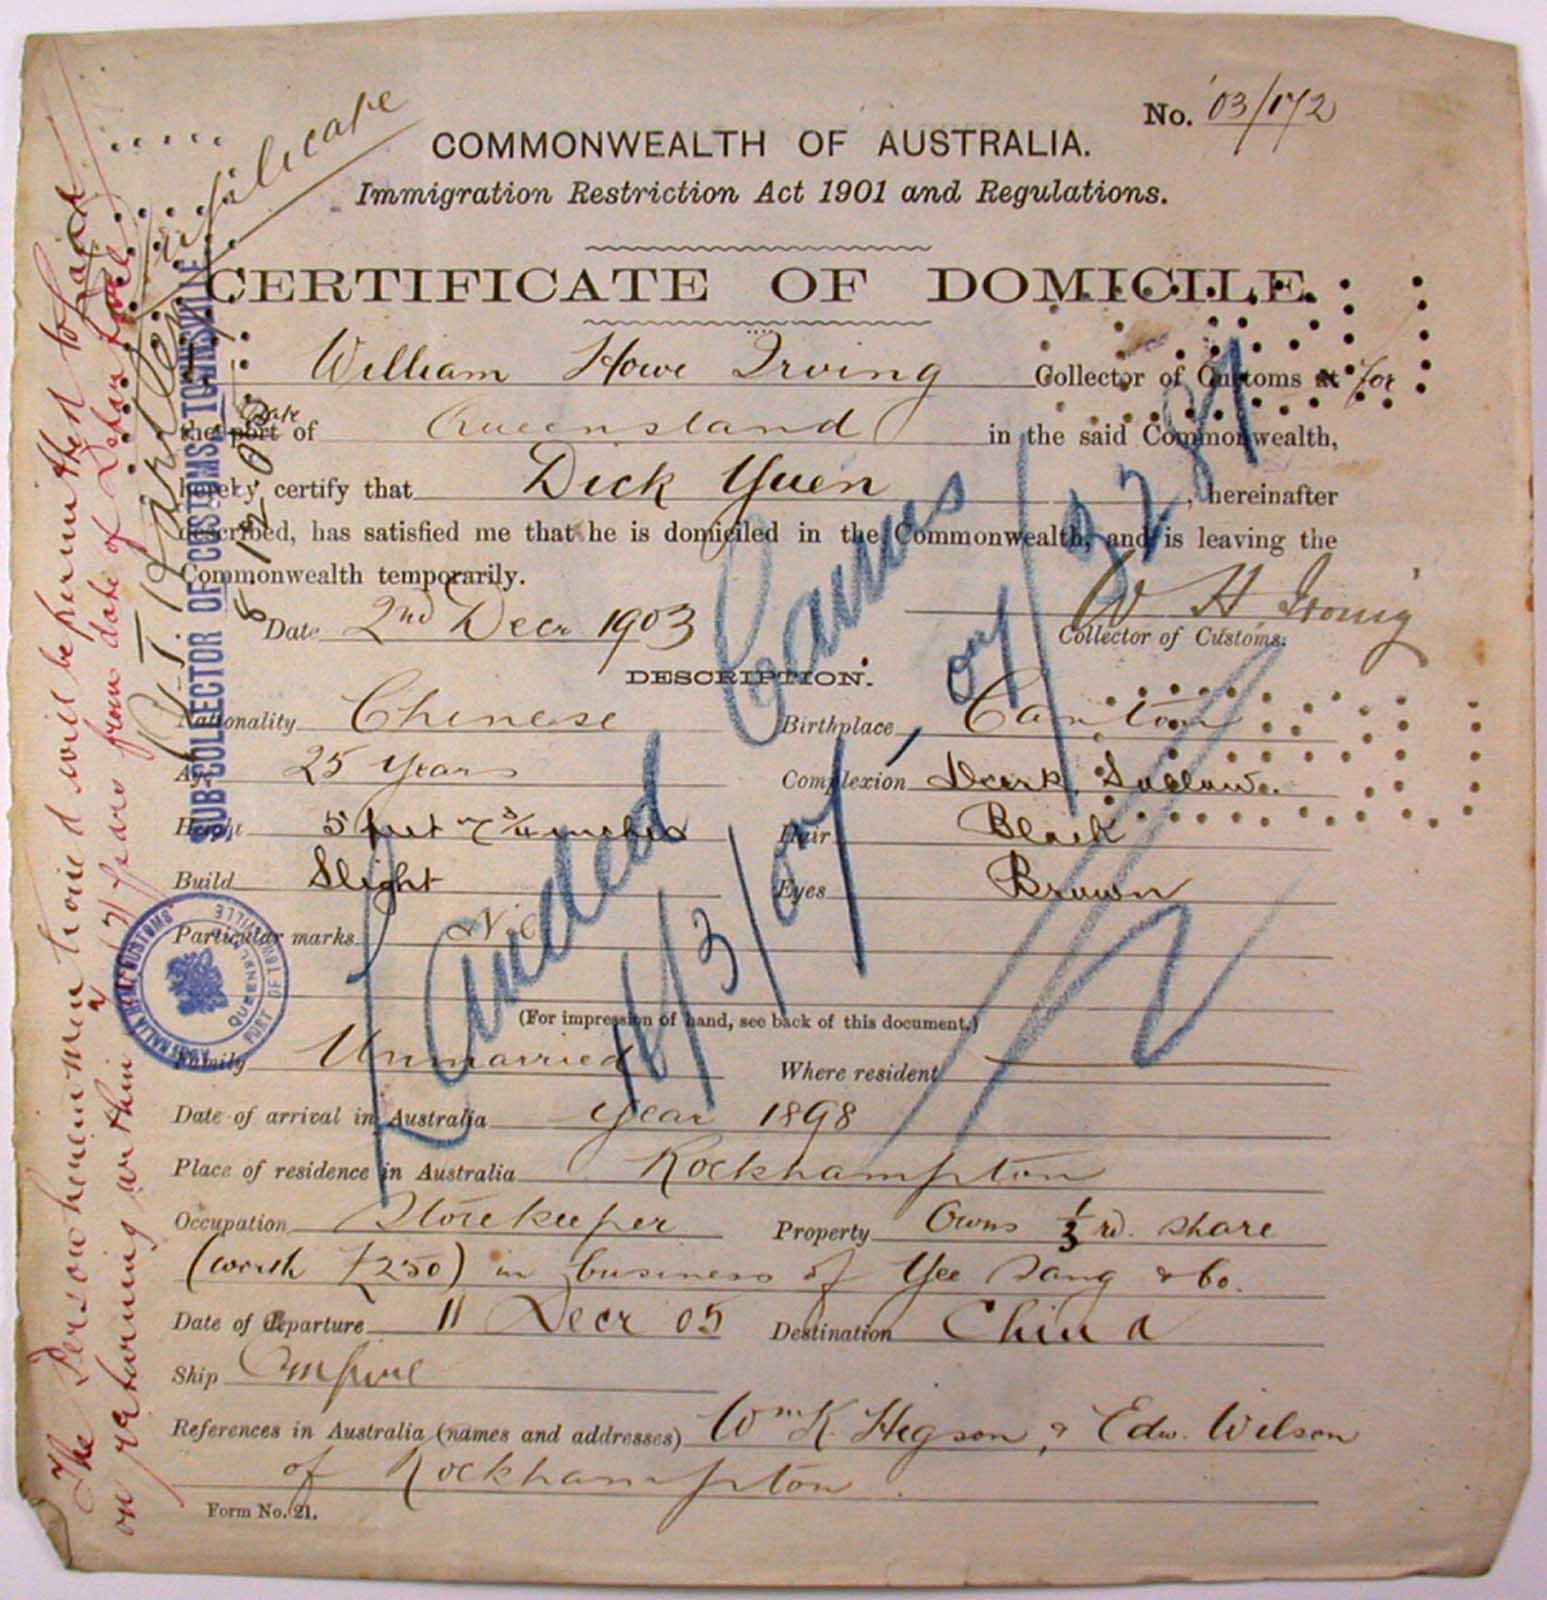 No. 03/172
COMMONWEALTH OF AUSTRALIA.
Immigration Restriction Act 1901 and Regulations.
CERTIFICATE OF DOMICILE.
William Howe Irving Collector of Customs at for
the port State of Queensland in the said Commonwealth,
hereby certify that Dick Yuen, hereinafter
described, has satisfied me that he is domiciled in the Commonwealth, and is leaving the
Commonwealth temporarily.
Date 2nd Decr 1903
W H Irving
Collector of Customs.
DESCRIPTION.
Nationality Chinese Birthplace Canton
Age 25 years Complexion Dark, Sallow.
Height 5 feet 7 3/4 inches Hair Black
Build Slight Eyes Brown
Particular marks Nil
(For impression of hand, see back of this document.)
Family Unmarried Where resident
Date of arrival in Australia year 1898
Place of residence in Australia Rockhampton
Occupation Storekeeper Property Owns 1/3 rd. share
(worth £250) in business of Yee Sang & Co.
Date of departure 11 Decr 05 Destination China
Ship Empire
References in Australia (names and addresses) Wm K. Higson, & Edw. Wilson
of Rockhampton.
Form No. 21.
The Person herein mentioned will be permitted to land
on returning within years from date of
Duplicate
SUB-COLLECTOR OF CUSTOMS TOWNSVILLE
PORT OF TOWNSVILLE
QUEENSLAND
Landed Cairns